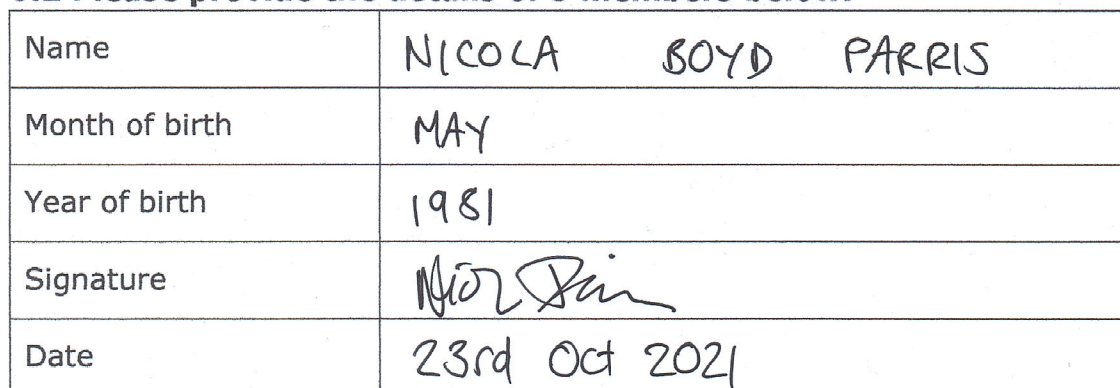 Name NICOLA BOYD PARRIS
Month of birth MAY
Year of birth 1981
Signature
Date 23rd Oct 2021